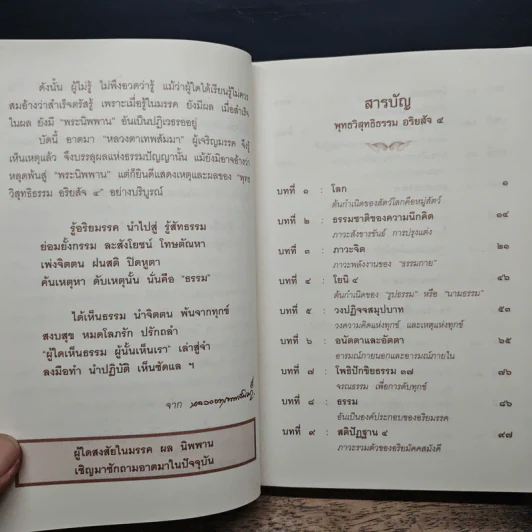 ดังนั้น ผู้ไม่รู้ ไม่พึงอวดว่ารู้ แม้ว่าผู้ใดได้เรียนรู้ไม่ควร
สมอ้างว่าสำเร็จตรัสรู้ เพราะเมื่อรู้ในมรรค ยังมีผล เมื่อสำเร็จ
ในผล ยังมี "พระนิพพาน" อันเป็นปฏิเวธรออยู่
บัดนี้ อาตมา "หลวงตาเทพสัมมา" ผู้เจริญมรรค จึงรู้
เห็นเหตุแล้ว จึงบรรลุผลแห่งธรรมปัญญานั้น แม้ยังมิอาจอ้างว่า
หลุดพ้นสู่ "พระนิพพาน" แต่ก็ยินดีแสดงเหตุและผลของ "พุทธ
วิสุทธิธรรม อริยสัจ ๔" อย่างบริบูรณ์
รู้อริยมรรค นำไปสู่ รู้สัทธรรม
ย่อมยั้งกรรม ละสังโยชน์ โทษตัณหา
เพ่งจิตตน ฝนสติ ปิดหูตา
ค้นเหตุหา ดับเหตุนั้น นั่นคือ "ธรรม"
ได้เห็นธรรม นำจิตตน พ้นจากทุกข์
สงบสุข หมดโลภรัก ปรักถลำ
"ผู้ใดเห็นธรรม ผู้นั้นเห็นเรา" เล่าสู่จำ
ลงมือทำ นำปฏิบัติ เห็นชัดแล ฯ
จาก
ผู้ใดสงสัยในมรรค ผล นิพพาน
เชิญมาซักถามอาตมาในปัจจุบัน
สารบัญ
พุทธวิสุทธิธรรม อริยสัจ ๔
บทที่ ๑ : โลก ๑
ต้นกำเนิดของสัตว์โลกคือหมู่สัตว์
บทที่ ๒ : ธรรมชาติของความนึกคิด ๑๔
ภาวะสังขารขันธ์ การปรุงแต่ง
บทที่ ๓ : ภาวะจิต ๒๑
ภาวะพลังงานของ "ธรรมกาย"
บทที่ ๔ : โยนิ ๔ ๔๖
ต้นกำเนิดของ "รูปธรรม" หรือ "นามธรรม"
บทที่ ๕ : วงปฏิจจสมุปบาท ๕๓
วงความคิดแห่งทุกข์ และเหตุแห่งทุกข์
บทที่ ๖ : อนัตตาและอัตตา ๖๕
อารมณ์ภายนอกและอารมณ์ภายใน
บทที่ ๗ : โพธิปักขิยธรรม ๓๗ ๗๖
จรณธรรม เพื่อการดับทุกข์
บทที่ ๘ : ธรรม ๘๖
อันเป็นองค์ประกอบของอริยมรรค
บทที่ ๙ : สติปัฏฐาน ๔ ๙๗
ภาวะรวมตัวของอริยมัคคสมังคี